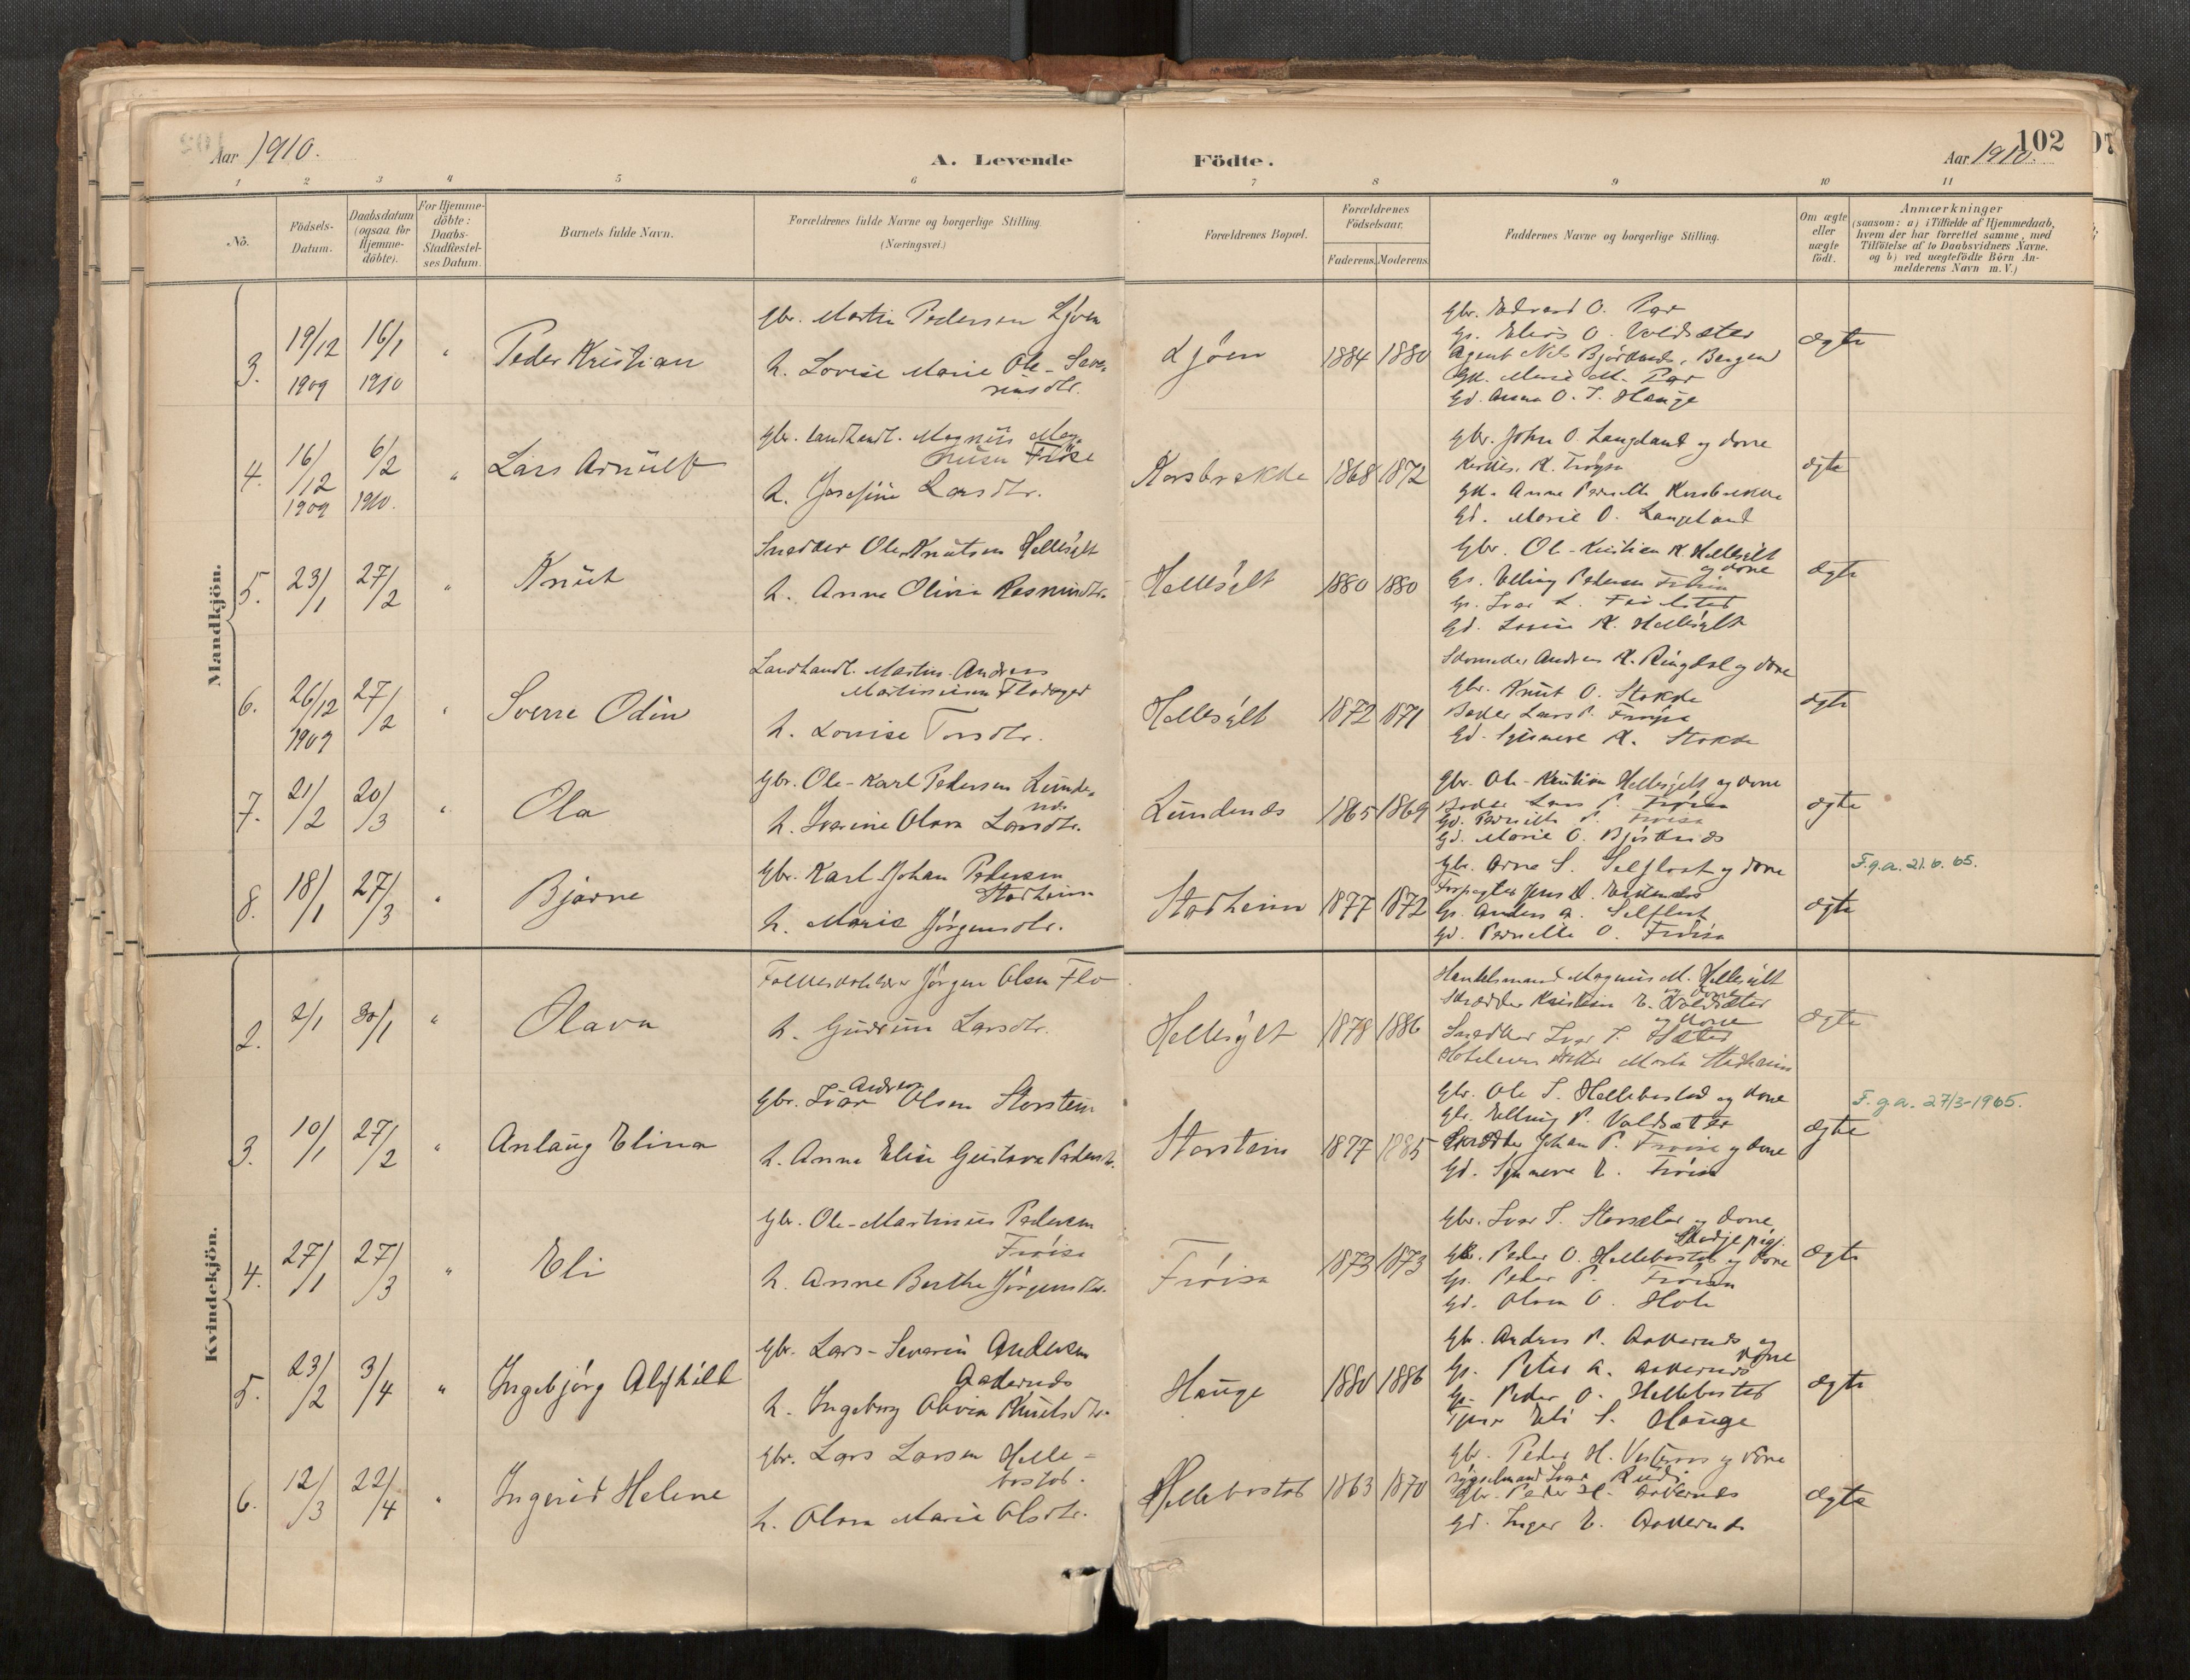 Aar 1910.
A. Levende
Födte.
102
Aar 1910.
1 2 3 4 5 6 7 8 9 10 11
Nö.
Födsels-
Datum.
Daabsdatum
(ogsaa for
Hjemme-
döbte).
For Hjemme-
döbte:
Daabs-
Stadfæstel-
ses Datum.
Barnets fulde Navn.
Forældrenes fulde Navne og borgerlige Stilling.
(Næringsvei.)
Forældrenes Bopæl.
Forældrenes
Födselsaar.
Faderens. Moderens.
Faddernes Navne og borgerlige Stilling.
Om ægte
eller
uægte
födt.
Anmærkninger
(saasom: a) i Tilfælde af Hjemmedaab,
hvem der har forrettet samme, med
Tilföielse af to Daabsvidners Navne.
og b) ved uægtefödte Börn An-
melderens Navn m.V.)
Mandkjön.
3.
19/12
1909
16/1
1910
"
Peder Kristian
Gbr. Martin Pedersen Ljøen
h. Lovise Marie Ole-Seve-
rinsdtr.
Ljøen
1884 1880
Gbr. Edvard O.
Gs. Elias O. Voldsæter
Agent Nils Bjørdnes, Bergen
Gk. Marie M.
Gd. Anna O. T. Hauge
ægte
4.
16/12
1909
6/2
1910.
"
Lars Arnulf
Gbr. landhandl. Magnus Mag-
nusen Frøise
h. Josefine Larsdtr.
Korsbrekke
1868 1872
Gbr. John O. Langeland og kone
K. Frøysa
Gk. Anne Pernille Korsbrekke
Gd. Marie O. Langeland
ægte
5.
23/1
27/2
"
Knut
Snedker Ole Knutsen Hellesylt
h. Anne Olivia Rasmusdtr.
Hellesylt
1880 1880
Gbr. Ole-Kristian K. Hellesylt
og kone
Gs. Elling Pedersen
Gs. Ivar L.
Gd. Lovise K. Hellesylt
ægte
6.
26/12
1909
27/2
"
Sverre Odin
Landhandl. Martin Andreas
Martinussen Flodager
h. Lovise Torsdtr.
Hellesylt
1872 1871
Skomager Andreas K. Ringdal og kone
Gbr. Knut O. Stokke
Bager Lars P. Frøysa
Gd. Synneve K. Stokke
ægte
7.
21/2
20/3
"
Ola
Gbr. Ole-Karl Pedersen Lunde-
nes
h. Iverine Olava Larsdtr.
Lundenes
1865 1869
Gbr. Ole-Kristian Hellesylt og kone
Bager Lars P. Frøisa
Gd. Pernille P. Frøisa
Gd. Marie O. Bjørdnes
ægte
8.
18/1
27/3
"
Bjarne
Gbr. Karl Johan Pedersen
Stadheim
h. Marie Jørgensdtr.
Stadheim
1877 1872
Gbr. Arne S. Selflot og kone
Forpagter Jens
Gs. Anders A. Selflot
Gd. Pernille O. Frøisa
ægte
F.g.a. 21.6.65.
Kvindekjön.
2.
2/1
30/1
"
Olava
Jørgen Olsen Flo
h. Gudrun Larsdtr.
Hellesylt
1878 1886
Handelsmand Magnus M. Hellesylt
og kone
Skrædder Kristian E. Voldsæter
og kone
Snedker Ivar T. Sæter
Marta Stadheim
ægte
3.
10/1
27/2
"
Anlaug Elina
Gbr. Ivar Andreas Olsen Storstein
h. Anne Elise Gustava Pedersdtr.
Storstein
1877 1885
Gbr. Ole T. Hellebostad og kone
Gbr. Elling P. Voldsæter
Snedker Johan P. Frøise og kone
Gd. Synneve E. Frøisa
ægte
F.g.a. 27/3-1965.
4.
27/1
27/3
"
Eli
Gbr. Ole-Martinus Pedersen
Frøisa
h. Anne Berthe Jørgensdtr.
Frøisa
1873 1873
Gbr. Ivar T. Storsæter og kone
Gbr. Peder O. Hellebostad og kone
Gs. Peder P. Frøisa
Gd. Olava O. Hole
ægte
5.
23/2
3/4
"
Ingebjørg Alfhild
Gbr. Lars-Severin Andersen
Aakernes
h. Ingeborg Olivia Knutsdtr.
Hauge
1880 1886
Gbr. Anders P. Aakernes og
kone
Gs. Peter A. Aakernes
Gs. Peder O. Hellebostad
Eli S. Hauge
ægte
6.
12/3
22/4
"
Ingerid Helene
Gbr. Lars Larsen Helle-
bostad.
h. Olava Marie Olsdtr.
Hellebostad
1863 1870
Gbr. Peder H. Vesteraas og kone
Ivar
Gbr. Peder H. Aakernes
Gd. Inger E. Aakernes
ægte